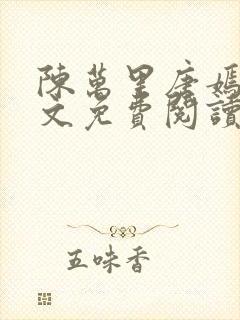 陳萬里唐嫣
文免費閱讀
五味香